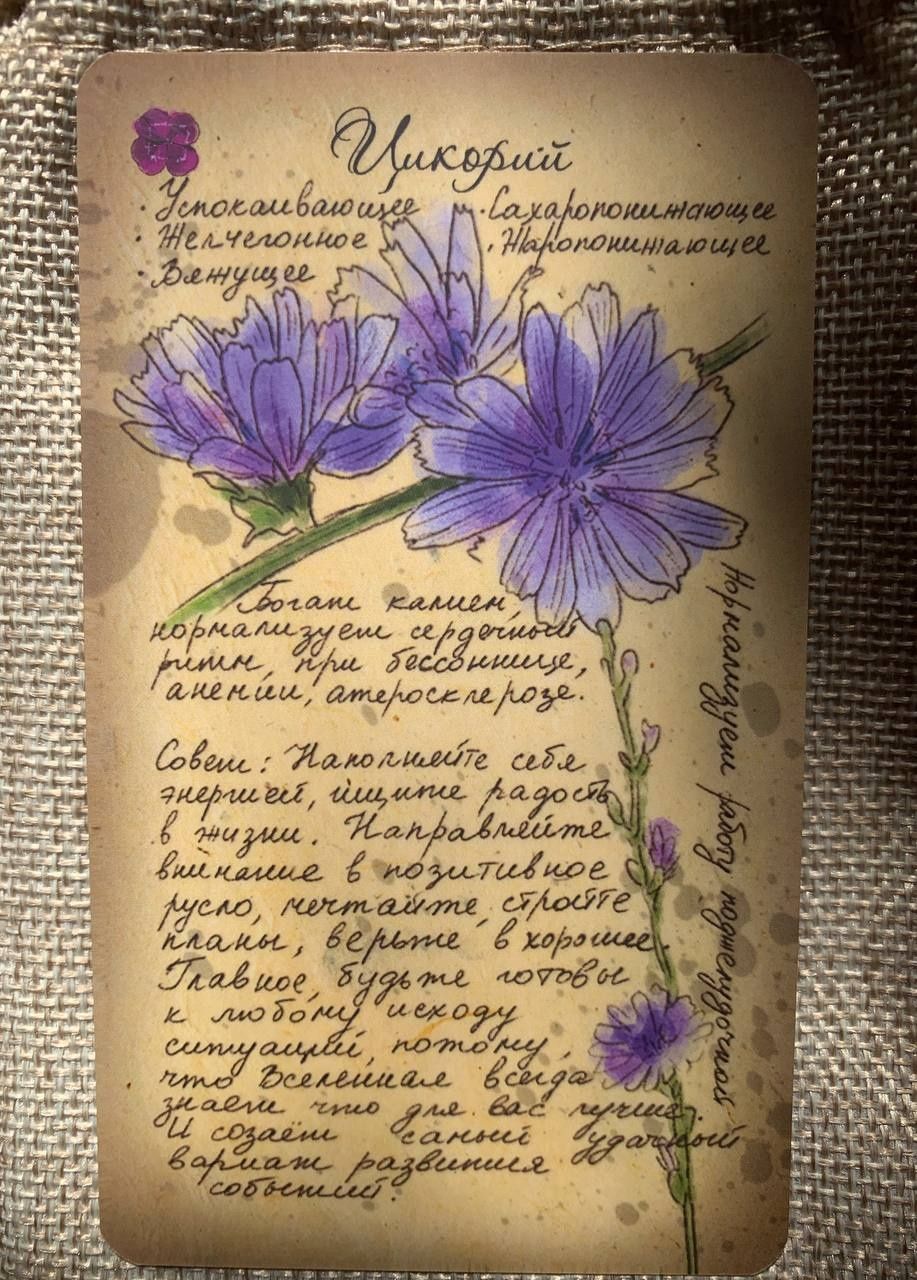 Цикорий
· Успокаивающее
· Желчегонное
· Вяжущее
· Сахаропонижающее
· Жаропонижающее
Богат калием,
нормализует сердечный
ритм, при бессоннице,
анемии, атеросклерозе.
Нормализует работу поджелудочной
Совет: Наполняйте себя
энергией, ищите радость
в жизни. Направляйте
внимание в позитивное
русло, мечтайте, стройте
планы, верьте в хорошее.
Главное, будьте готовы
к любому исходу
ситуаций, потому,
что Вселенная всегда
знает что для вас лучше.
И созаёт самый удачный
вариат развития
событий.